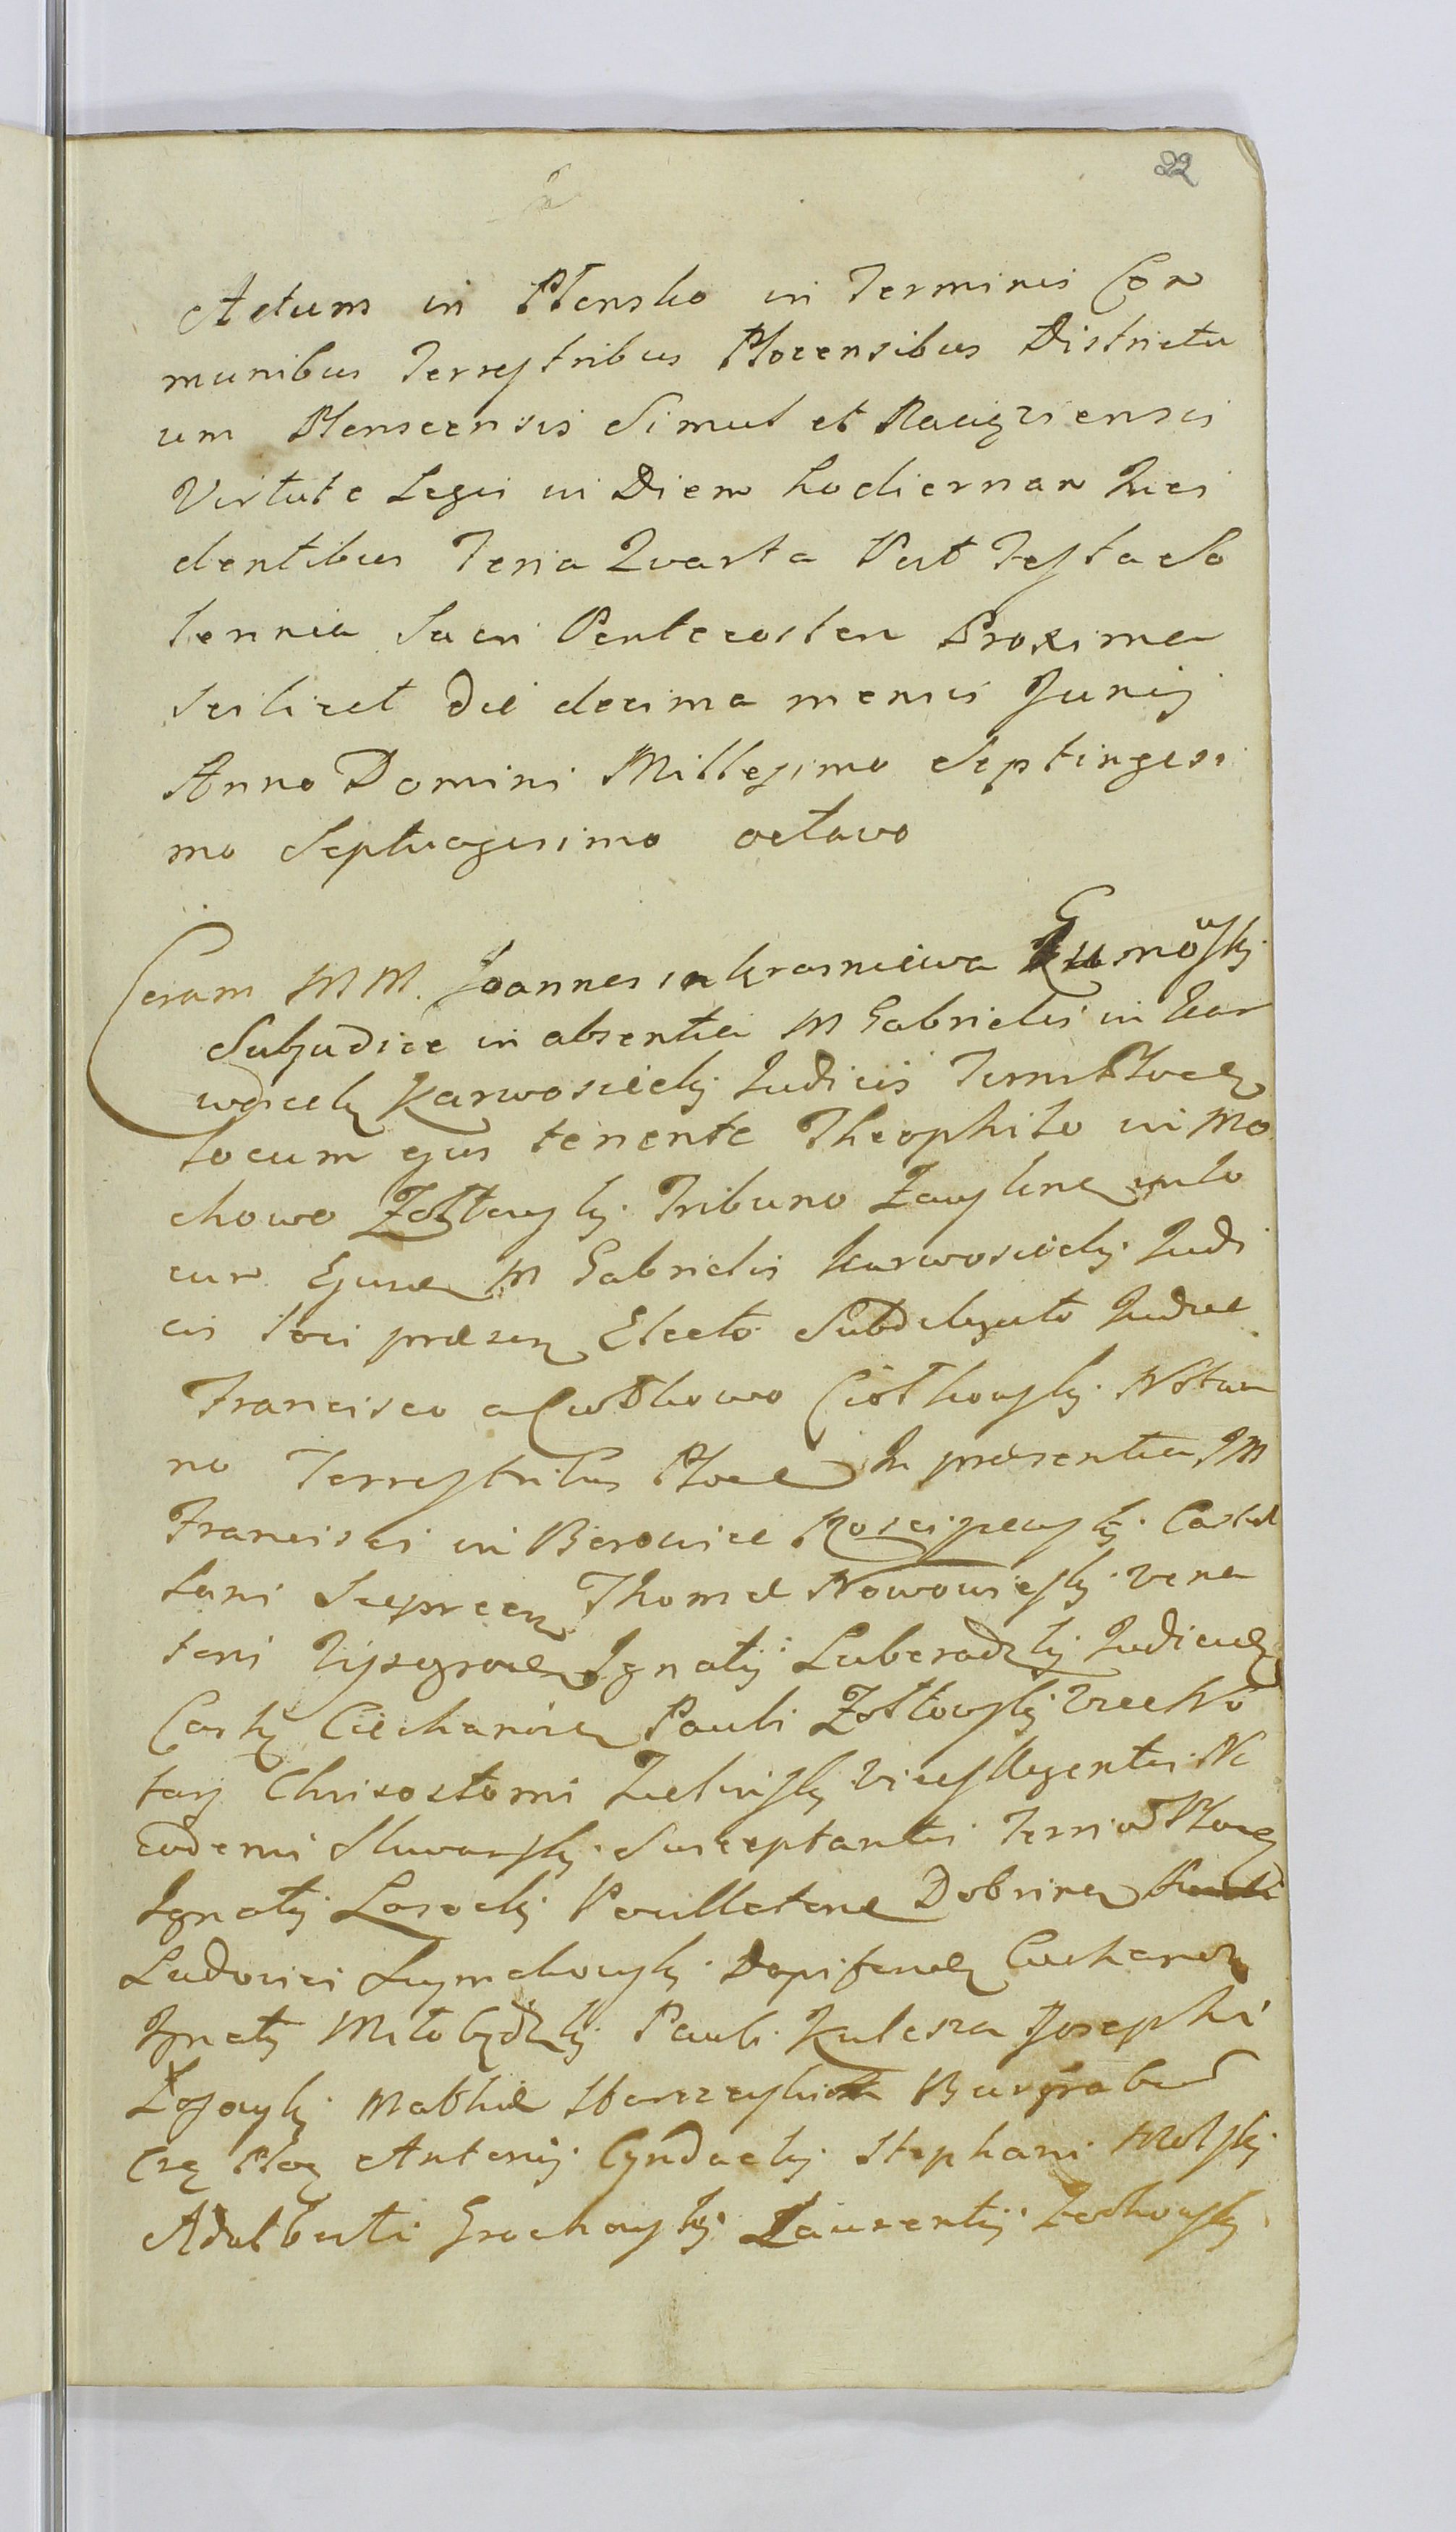 22
Actum in Plonsko in Terminis Com
munibus Terrestribus Plocensibus Districtu
um Plonscensis Simul et Raciąziensis
Virtute Legis in Diem hodiernam Inci
dentibus Feria Quarta Post Festa So
lennia Sacri Pentecosten Proxima
scilicet Die decima mensis Junij
Anno Domini Millesimo Septingesi
mo Septuagesimo octavo
Coram MM. Joannes in Krasniewa
Subjudice in absentia M Gabrielis in Kar
Karwosiecki Judicis Terris Plocen
locum ejus tenente Theophilo in Mo
chowo Zołtowski Tribuno Zawskrne in lo
cum Ejusdem M Gabrielis Karwosiecki Judi
cis loci præsen Electo Subdelegato Judice
Francisco a Ciołkowo Ciołkowski Nota
rio Terrestribus Ploc In præsentia IM
Francisci in Borowice Kosciszewski Castel
lani Sieprcen Thomæ Nowowieski vena
toris Wyszogroden Ignatij Luberadzki Judicis
Castr Ciechanow Pauli Zołtowski ViceNo
tarij Chrisostomi Zielinski ViceRegentis Ni
codemi Suscceptantis Terris Plocen
Ignatij Lasocki Pocillatoris Dobrinen
Ludovici Szymakowski Dapiferide Ciechanow
Ignatij Miłobędzki Pauli Kulesza Josephi
Mathiæ Burgrabid
Cas Ploc Antonij Cyndacki Stephani Wolski
Adalberti Grochowski Laurentij